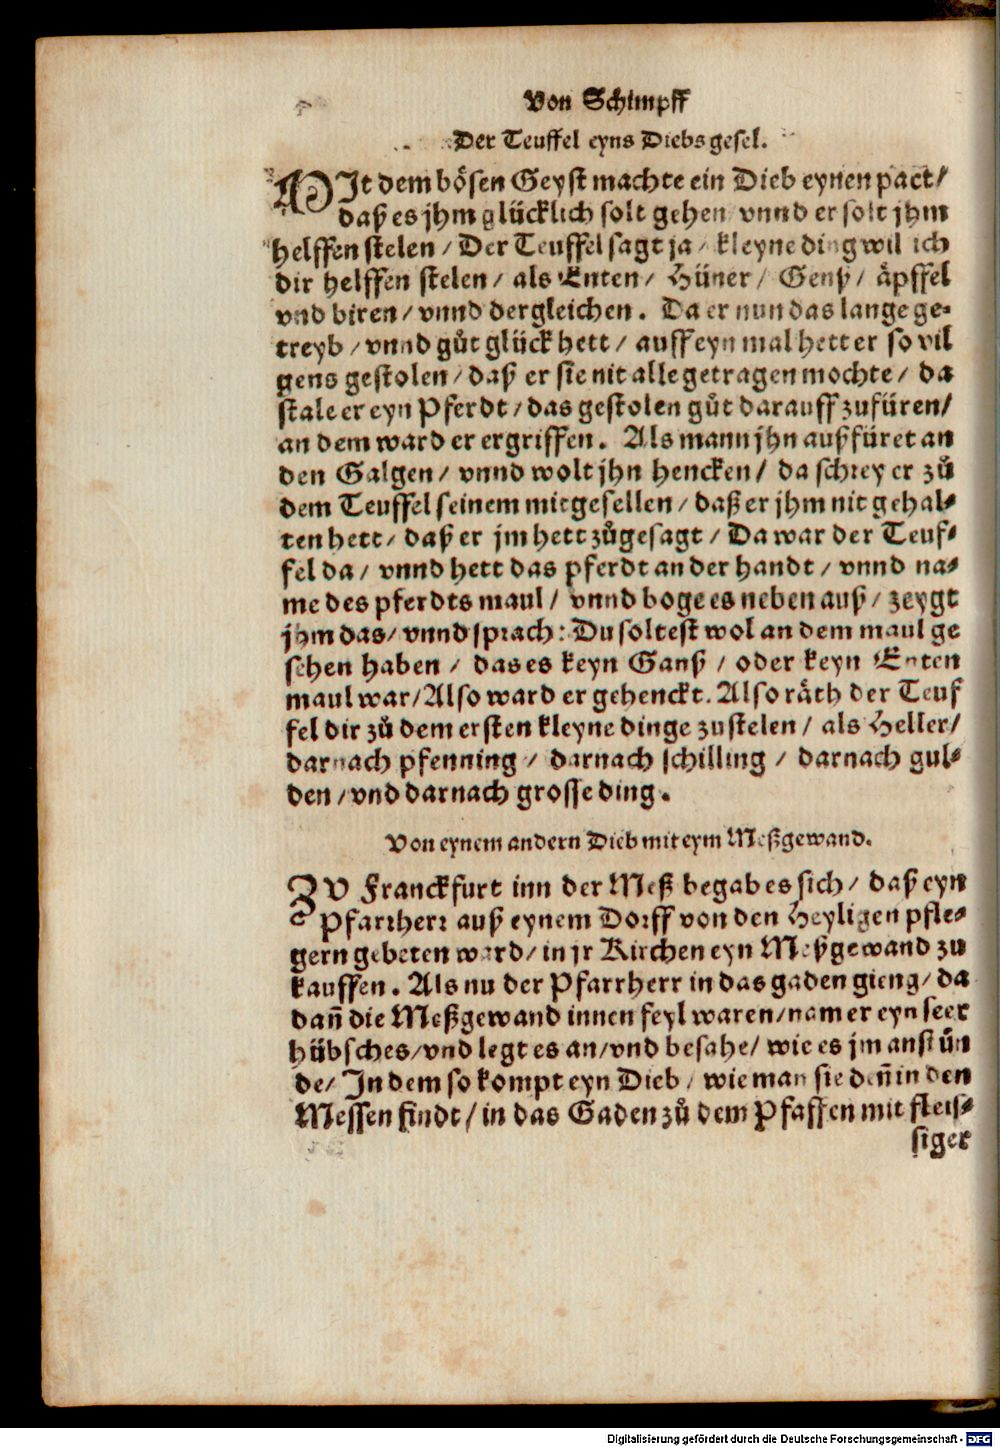 Von Schimpff
Der Teuffel eyns Diebs gesel.
MIt dem bösen Geyst machte ein Dieb eynen pact/
daß es jhm glücklich solt gehen vnnd er solt jhm
helffen stelen / Der Teuffel sagt ja / kleyne ding wil ich
dir helffen stelen / als Enten / Hüner / Genß / äpffel
vnd biren / vnnd dergleichen . Da er nun das lange ge⸗
treyb / vnnd gůt glück hett / auff eyn mal hett er so vil
gens gestolen / daß er sie nit alle getragen mochte / da
stale er eyn Pferdt / das gestolen gůt darauff zufüren/
an dem ward er ergriffen . Als mann jhn außfüret an
den Galgen / vnnd wolt jhn hencken / da schrey er zů
dem Teuffel seinem mitgesellen / daß er jhm nit gehal⸗
ten hett / daß er jm hett zůgesagt / Da war der Teuf⸗
fel da / vnnd hett das pferdt an der handt / vnnd na⸗
me des pferdts maul / vnnd boge es neben auß / zeygt
jhm das / vnnd sprach : Du soltest wol an dem maul ge
sehen haben / das es keyn Ganß / oder keyn Enten
maul war / Also ward er gehenckt . Also räth der Teuf
fel dir zů dem ersten kleyne dinge zustelen / als Heller /
darnach pfenning / darnach schilling / darnach gul⸗
den / vnd darnach grosse ding .
Von eynem andern Dieb mit eym Meßgewand.
ZV Franckfurt inn der Meß begab es sich / daß eyn
Pfarrherr auß eynem Dorff von den Heyligen pfle⸗
gern gebeten ward / in jr Kirchen eyn Meßgewand zu
kauffen . Als nu der Pfarrherr in das gaden gieng / da
dañ die Meßgewand innen feyl waren / nam er eyn seer
hübsches / vnd legt es an / vnd besahe / wie es jm anstün
de / In dem so kompt eyn Dieb / wie man sie deñ in den
Messen findt / in das Gaden zů dem Pfaffen mit fleis⸗
siger
Digitalisierung gefördert durch die Deutsche Forschungsgemeinschaft - DFG